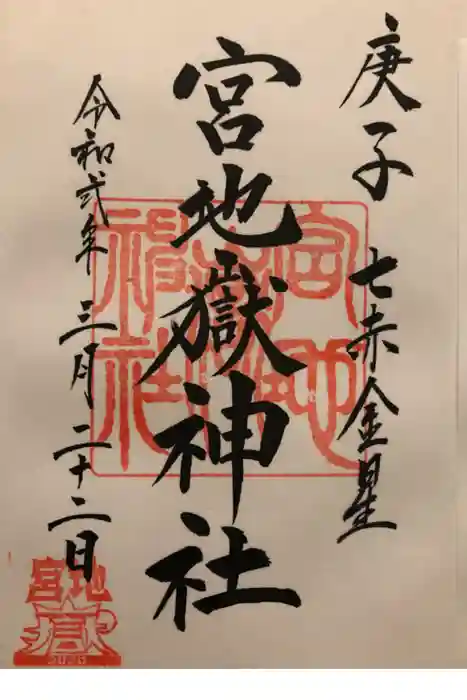 庚子 七赤金星
宮地嶽神社
令和弐年 三月 二十二日
宮地嶽神社
宮地
嶽